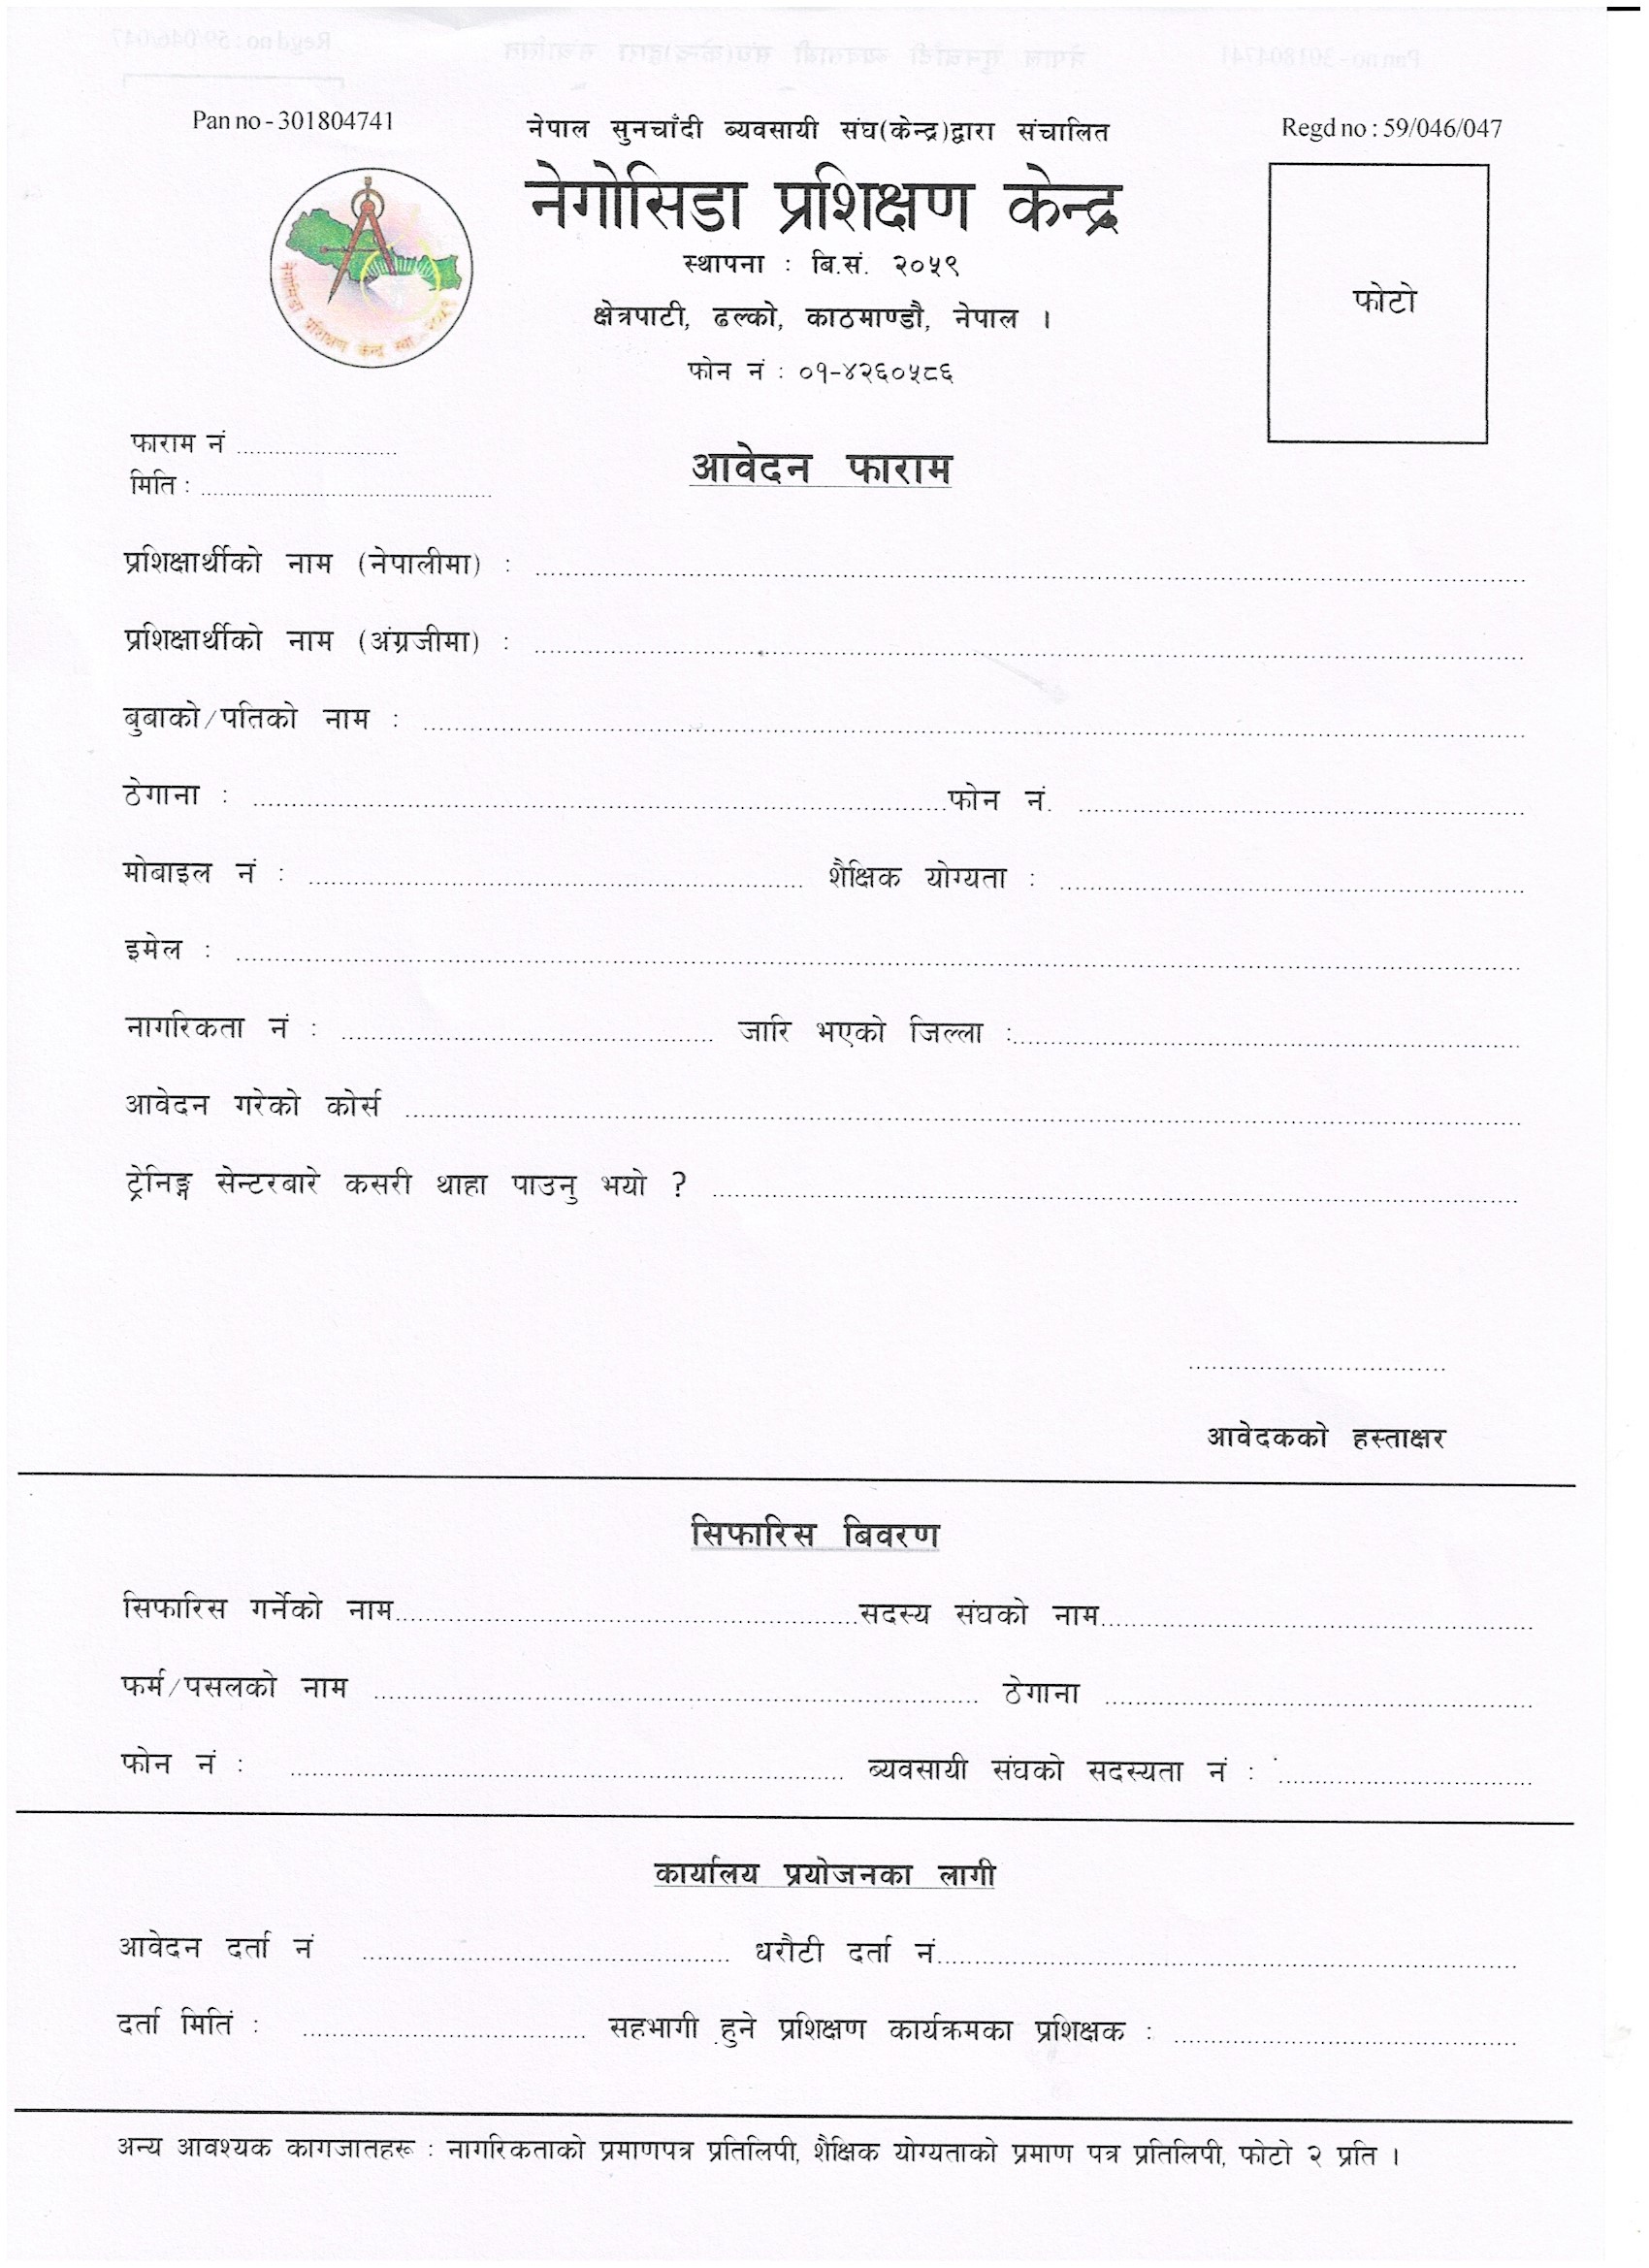 Pan no - 301804741
नेपाल सुनचाँदी ब्यवसायी संघ(केन्द्र)द्वारा संचालित
Regd no : 59/046/047
नेगोसिडा प्रशिक्षण केन्द्र
स्थापना : बि.सं. २०५९
क्षेत्रपाटी, ढल्को, काठमाण्डौ, नेपाल ।
फोन नं : ०१-४२६०५८६
नेगोसिडा प्रशिक्षण केन्द्र स्था
फोटो
फाराम नं ........................
मिति : ........................
आवेदन फाराम
प्रशिक्षार्थीको नाम (नेपालीमा) : ........................
प्रशिक्षार्थीको नाम (अंग्रजीमा) : ........................
बुबाको/पतिको नाम : ........................
ठेगाना : ........................फोन नं. ........................
मोबाइल नं : ........................ शैक्षिक योग्यता : ........................
इमेल : ........................
नागरिकता नं : ........................ जारि भएको जिल्ला :........................
आवेदन गरेको कोर्स ........................
ट्रेनिङ्ग सेन्टरबारे कसरी थाहा पाउनु भयो ? ........................
........................
आवेदकको हस्ताक्षर
सिफारिस बिवरण
सिफारिस गर्नेको नाम........................सदस्य संघको नाम........................
फर्म/पसलको नाम ........................ ठेगाना ........................
फोन नं : ........................ ब्यवसायी संघको सदस्यता नं : ........................
कार्यालय प्रयोजनका लागी
आवेदन दर्ता नं ........................ धरौटी दर्ता नं........................
दर्ता मितिं : ........................ सहभागी हुने प्रशिक्षण कार्यक्रमका प्रशिक्षक : ........................
अन्य आवश्यक कागजातहरू : नागरिकताको प्रमाणपत्र प्रतिलिपी, शैक्षिक योग्यताको प्रमाण पत्र प्रतिलिपी, फोटो २ प्रति ।